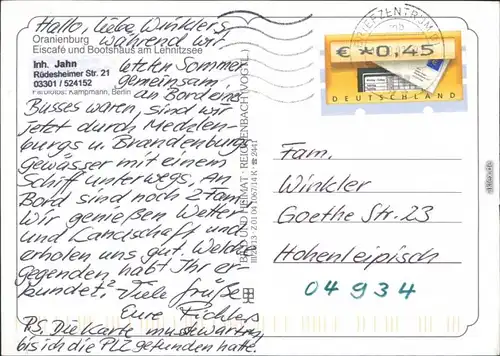 Hallo, liebe Winklers,
Oranienburg
Eiscafé und Bootshaus am Lehnitzsee
während wir
Inh. Jahn
Rüdesheimer Str. 21
03301 / 524152
Farbfotos: Kampmann, Berlin
letzten Sommer
gemeinsam
an Bord eines
Busses waren, sind wir
jetzt durch Mecklen-
burgs u. Brandenburgs
gewässer mit einem
Schiff unterwegs. An
Bord sind noch 2 Fam.
Wir genießen Wetter
und Landschaft und
erholen uns gut. Welche
gegenden habt Ihr er-
kundet? Viele grüße
Eure Pichlers
PS. Die Karte musste warten,
bis ich die PLZ gefunden hatte.
BILD UND HEIMAT · REICHENBACH (VOGTL.)
BRIEFZENTRUM
€ *0,45
DEUTSCHLAND
Fam.
Winkler
Goethe Str. 23
Hohenleipisch
04934